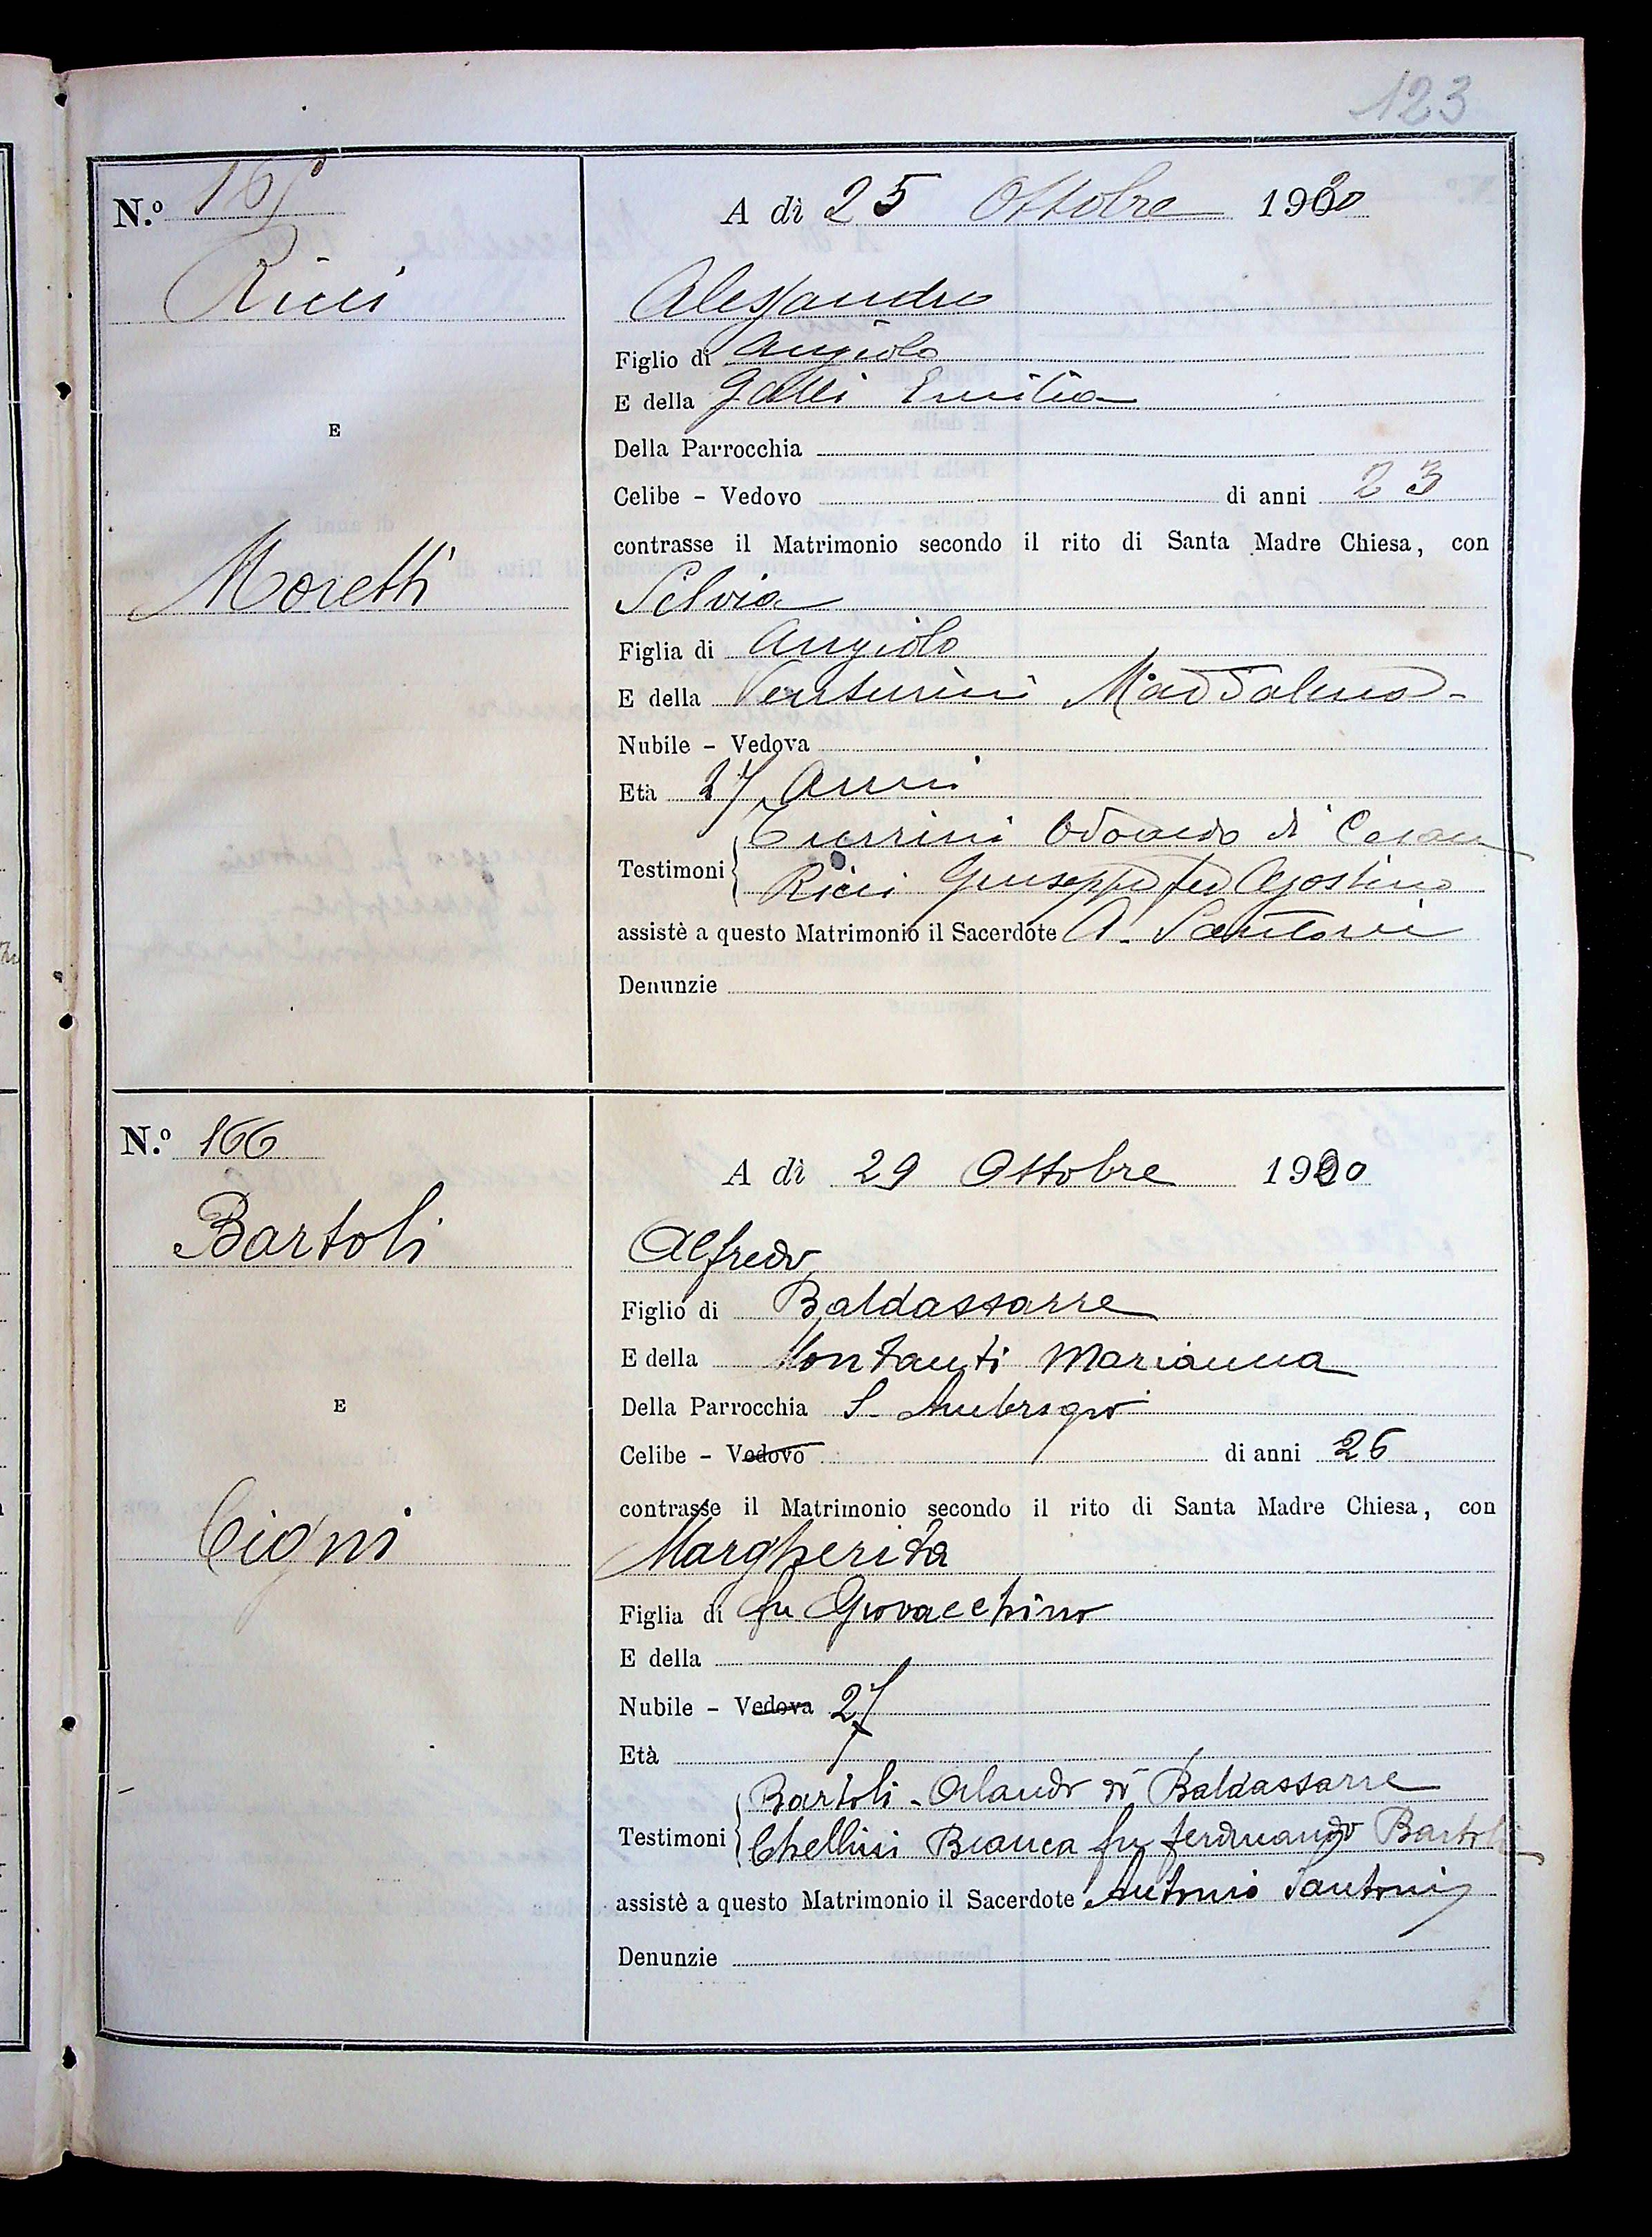 123
N.o 165
A dì 25 Ottobre 1920
Ricci
Alessandro
Figlio di Angiolo
E della Galli Emilia
E
Della Parrocchia
Celibe - Vedovo di anni 23
contrasse il Matrimonio secondo il rito di Santa Madre Chiesa, con
Moretti
Silvia
Figlia di Angiolo
E della Venturini Maddalena
Nubile - Vedova
Età 27 Anni
Turrini Odoardo di Cesare
Testimoni
Ricci Giuseppe fu Agostino
assistè a questo Matrimonio il Sacerdote A. Santoni
Denunzie
N.o 166
A dì 29 Ottobre 1920
Bartoli
Alfredo
Figlio di Baldassarre
E della Montauti Marianna
E
Della Parrocchia S. Ambrogio
Celibe - Vedovo di anni 26
contrasse il Matrimonio secondo il rito di Santa Madre Chiesa, con
Cigni
Margherita
Figlia di fu Giovacchino
E della
Nubile - Vedova 27
Età
Bartoli - Orlando di Baldassarre
Testimoni
Chellini Bianca fu Ferdinando Bartoli
assistè a questo Matrimonio il Sacerdote Antonio Santoni
Denunzie